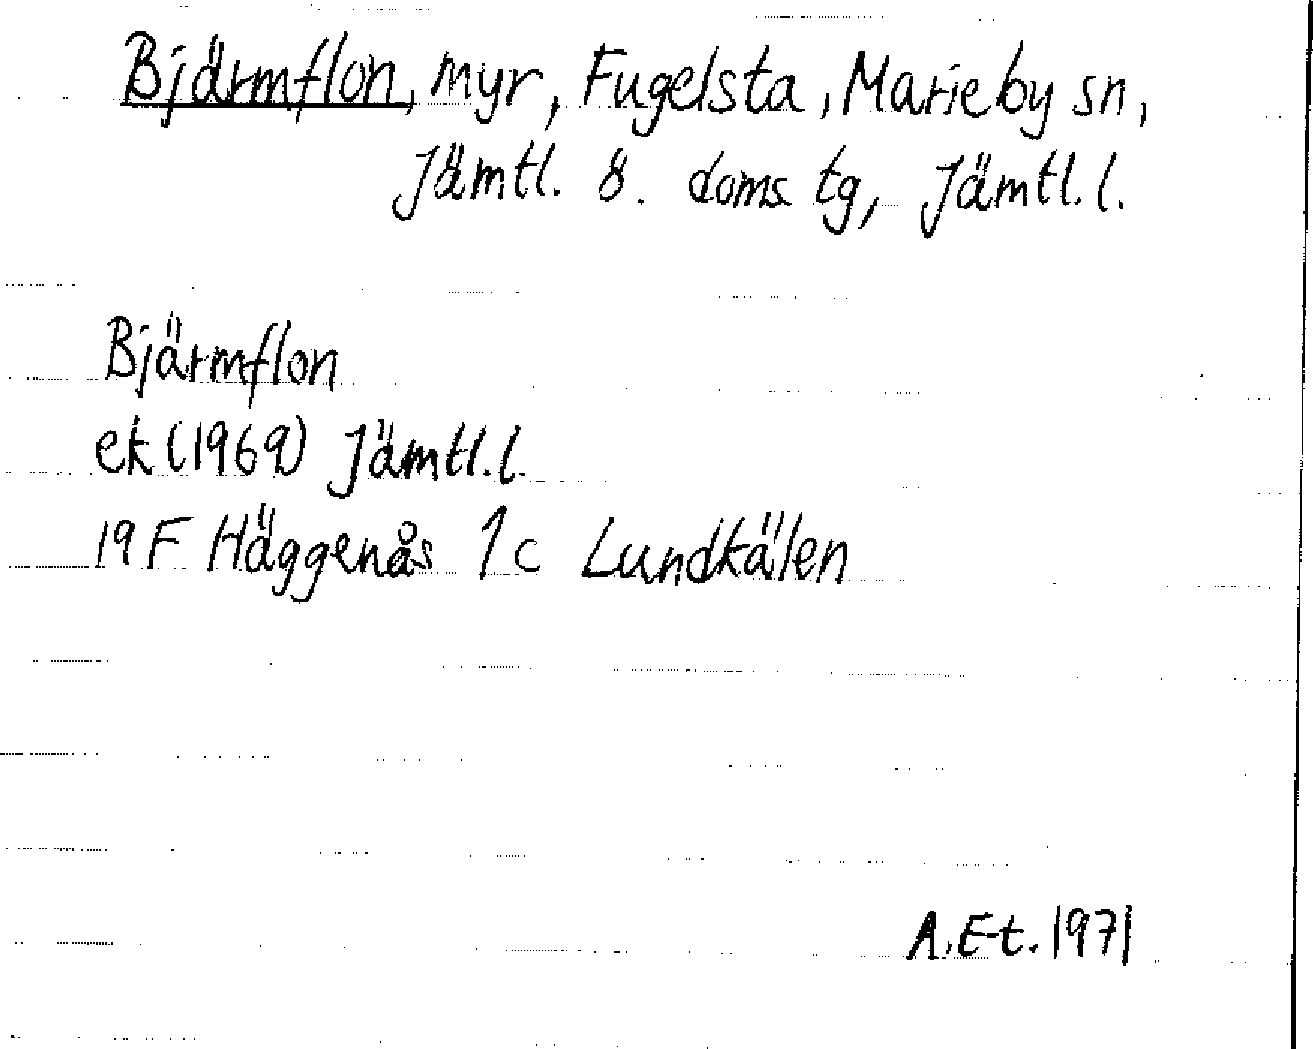 Bjärmflon, myr, Fugelsta, Marieby sn,
Jämtl. ö. doms tg, Jämtl. l.
Bjärmflon
ek (1969) Jämtl. l.
19 F Häggenås 1 c Lundkälen
A. E-t. 1971